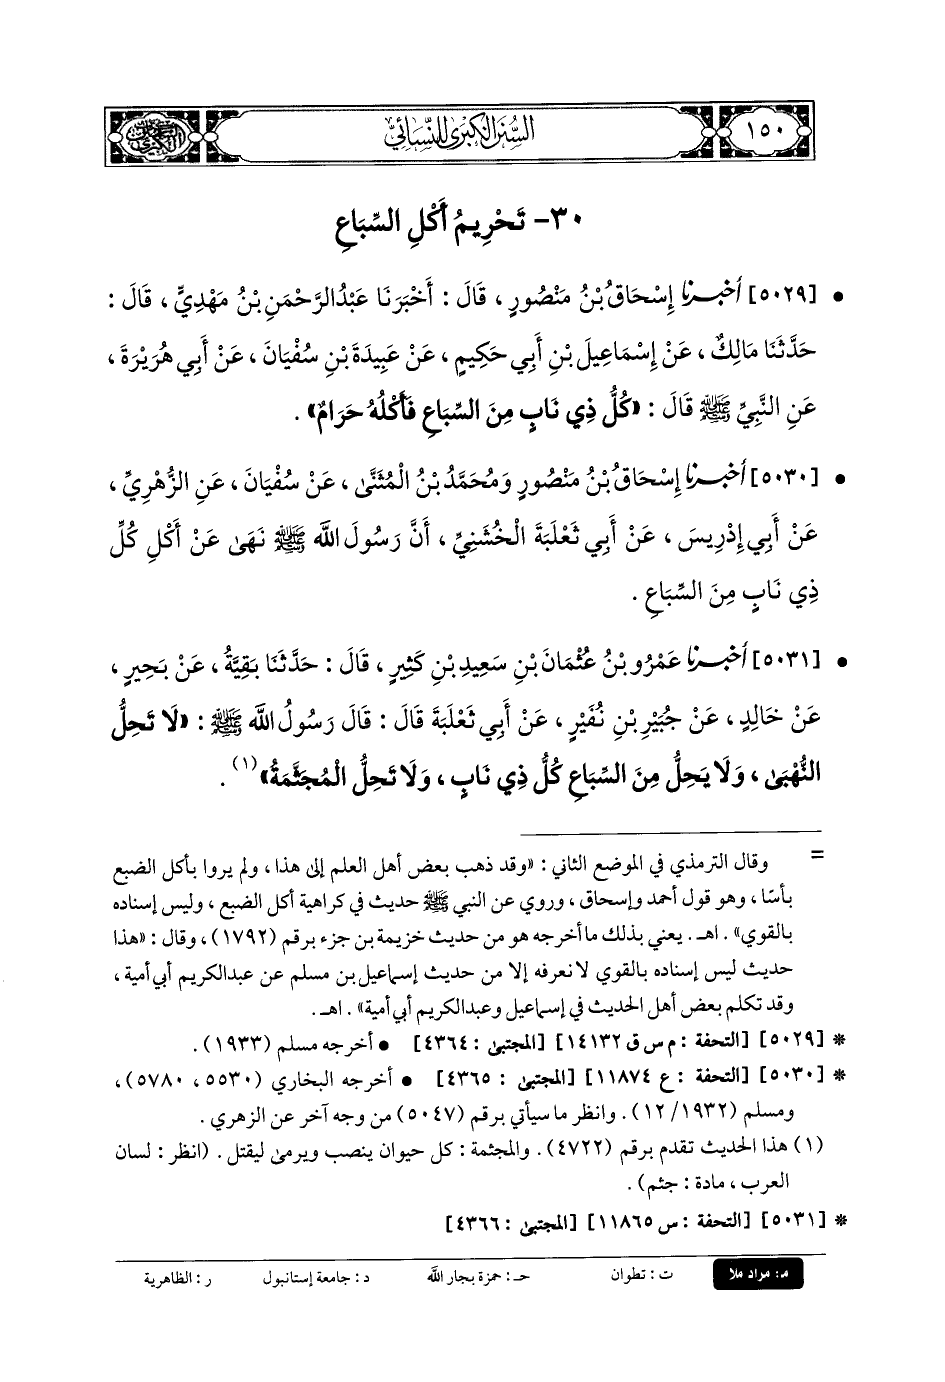 ١٥٠
السُّنَنُ الكِبْرَىٰ لِلنَّسَائِيِّ
٣٠- تَحْرِيمُ أَكْلِ السِّبَاعِ
• [٥٠٢٩] أخبرنا إِسْحَاقُ بْنُ مَنْصُورٍ ، قَالَ : أَخْبَرَنَا عَبْدُ الرَّحْمَنِ بْنُ مَهْدِيٍّ ، قَالَ :
حَدَّثَنَا مَالِكٌ ، عَنْ إِسْمَاعِيلَ بْنِ أَبِي حَكِيمٍ ، عَنْ عَبِيدَةَ بْنِ سُفْيَانَ ، عَنْ أَبِي هُرَيْرَةَ ،
عَنِ النَّبِيِّ ﷺ قَالَ : «كُلُّ ذِي نَابٍ مِنَ السِّبَاعِ فَأَكْلُهُ حَرَامٌ» .
• [٥٠٣٠] أخبرنا إِسْحَاقُ بْنُ مَنْصُورٍ وَمُحَمَّدُ بْنُ الْمُثَنَّىٰ ، عَنْ سُفْيَانَ ، عَنِ الزُّهْرِيِّ ،
عَنْ أَبِي إِدْرِيسَ ، عَنْ أَبِي ثَعْلَبَةَ الْخُشَنِيِّ ، أَنَّ رَسُولَ اللَّه ﷺ نَهَىٰ عَنْ أَكْلِ كُلِّ
ذِي نَابٍ مِنَ السِّبَاعِ .
• [٥٠٣١] أخبرنا عَمْرُو بْنُ عُثْمَانَ بْنِ سَعِيدِ بْنِ كَثِيرٍ ، قَالَ : حَدَّثَنَا بَقِيَّةُ ، عَنْ بَحِيرٍ ،
عَنْ خَالِدٍ ، عَنْ جُبَيْرِ بْنِ نُفَيْرٍ ، عَنْ أَبِي ثَعْلَبَةَ قَالَ : قَالَ رَسُولُ اللَّه ﷺ : «لَا تَحِلُّ
النُّهْبَىٰ ، وَلَا يَحِلُّ مِنَ السِّبَاعِ كُلُّ ذِي نَابٍ ، وَلَا تَحِلُّ الْمُجَثَّمَةُ» (١) .
= وقال الترمذي في الموضع الثاني : «وقد ذهب بعض أهل العلم إلى هذا ، ولم يروا بأكل الضبع
بأسًا ، وهو قول أحمد وإسحاق ، وروي عن النبي ﷺ حديث في كراهية أكل الضبع ، وليس إسناده
بالقوي» . اهـ . يعني بذلك ما أخرجه هو من حديث خزيمة بن جزء برقم (١٧٩٢) ، وقال : «هذا
حديث ليس إسناده بالقوي لا نعرفه إلا من حديث إسماعيل بن مسلم عن عبدالكريم أبي أمية ،
وقد تكلم بعض أهل الحديث في إسماعيل وعبدالكريم أبي أمية» . اهـ .
* [٥٠٢٩] [التحفة : م س ق ١٤١٣٢] [المجتبى : ٤٣٦٤] • أخرجه مسلم (١٩٣٣) .
* [٥٠٣٠] [التحفة : ع ١١٨٧٤] [المجتبى : ٤٣٦٥] • أخرجه البخاري (٥٥٣٠ ، ٥٧٨٠) ،
ومسلم (١٢/١٩٣٢) . وانظر ما سيأتي برقم (٥٠٤٧) من وجه آخر عن الزهري .
(١) هذا الحديث تقدم برقم (٤٧٢٢) . والمجثمة : كل حيوان ينصب ويرمى ليقتل . (انظر : لسان
العرب ، مادة : جثم) .
* [٥٠٣١] [التحفة : س ١١٨٦٥] [المجتبى : ٤٣٦٦]
م: مراد ملا ت : تطوان حـ : حمزة بجار اللَّه د : جامعة إستانبول ر : الظاهرية